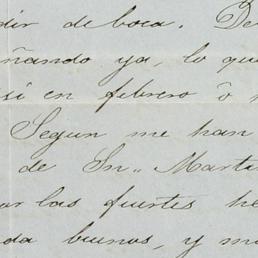 dir de boca. De
ñando ya, lo que
si en febrero ó
Segun me han
de Sn,, Marti
or las fuertes he
da buenos, y m